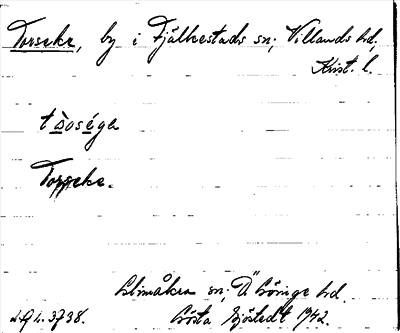 Torseke, by i Fjälkestads sn; Villands hd,
Krist. l.
t s̀oséga
Torseke.
Glimåkra sn; Ö Göinge hd
Gösta Sjöstedt 1942.
3738.